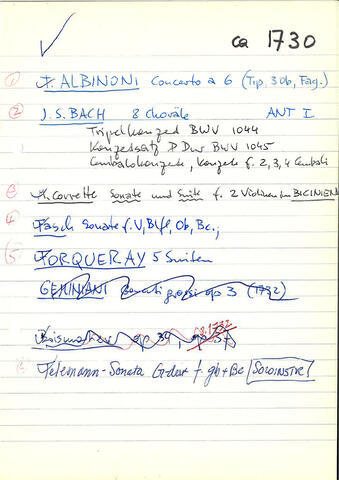 ca 1730
① T. ALBINONI Concerto a 6 (Trp, 3 Ob, Fag.)
② J.S. BACH 8 Choräle ANT I
Tripelkonzert BWV 1044
Konzertsatz D Dur BWV 1045
Cembalokonzerte, Konzerte f. 2, 3, 4 Cembali
③ Corrette Sonate und Suite f. 2 Violinen BICINIEN
④ Fasch Sonate f. V, Blfl, Ob, Bc.;
⑤ FORQUERAY 5 Suiten
GEMINIANI Concerti grossi op 3 (1732)
Boismortier op 34, op 37 1732
Telemann-Sonata G-dur f. gb + Bc SOLOINSTR.